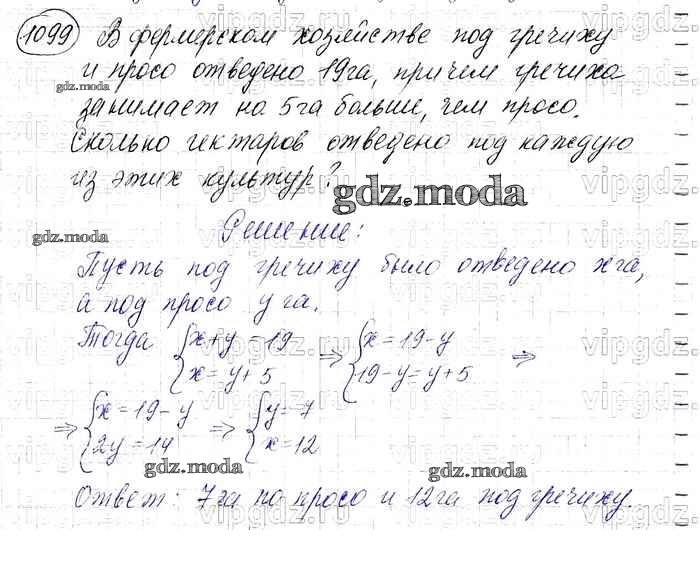 1099 В фермерском хозяйстве под гречиху
и просо отведено 19га, причем гречиха
gdz.moda
занимает на 5га больше, чем просо.
Сколько гектаров отведено под каждую
из этих культур?
gdz.moda
Решение:
gdz.moda
Пусть под гречиху было отведено x га,
а под просо y га.
Тогда {x+y=19 ⇒ {x=19-y ⇒
{x=y+5 {19-y=y+5
⇒ {x=19-y ⇒ {y=7
{2y=14 {x=12
gdz.moda gdz.moda
Ответ: 7га по просо и 12га под гречиху.
vipgdz